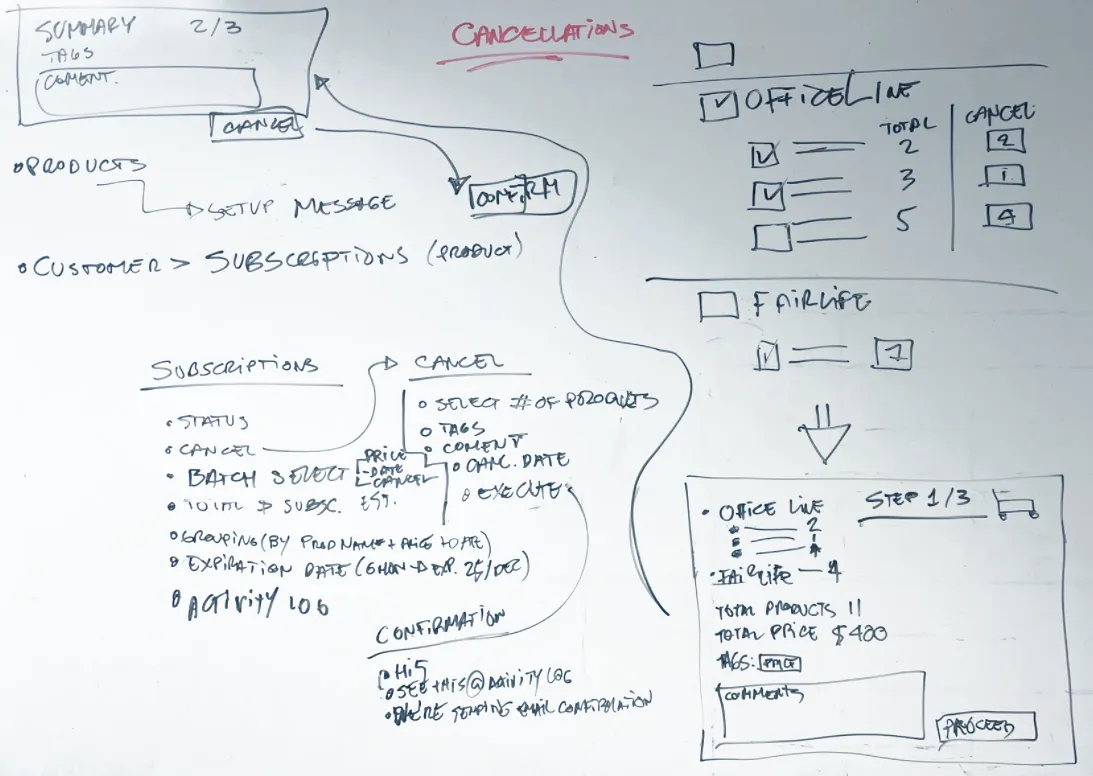 CANCELLATIONS
SUMMARY 2/3
TAGS
COMENT.
CANCEL
CONFIRM
• PRODUCTS
SETUP MESSAGE
• CUSTOMER > SUBSCRIPTIONS (PRODUCT)
SUBSCRIPTIONS
• STATUS
• CANCEL
• BATCH SELECT
PRICE
- DATE
CANCEL
• TOTAL SUBSC. EST.
• GROUPING (BY PROD NAME + PRICE + DATE)
• EXPIRATION DATE (6 MON → EXP. 25/DEC)
• ACTIVITY LOG
CANCEL
○ SELECT # OF PRODUCTS
○ TAGS
○ COMENT
○ CANC. DATE
○ EXECUTE
CONFIRMATION
• Hi5
• SEE THIS @ ACTIVITY LOG
• WE'RE SENDING EMAIL CONFIRMATION
OFFICELINE
TOTAL CANCEL
2 2
3 1
5 4
FAIRLIFE
7
STEP 1/3
• OFFICE LINE
2
1
• FAIRLIFE — 4
TOTAL PRODUCTS 11
TOTAL PRICE $400
TAGS: PRICE
COMMENTS
PROCEED